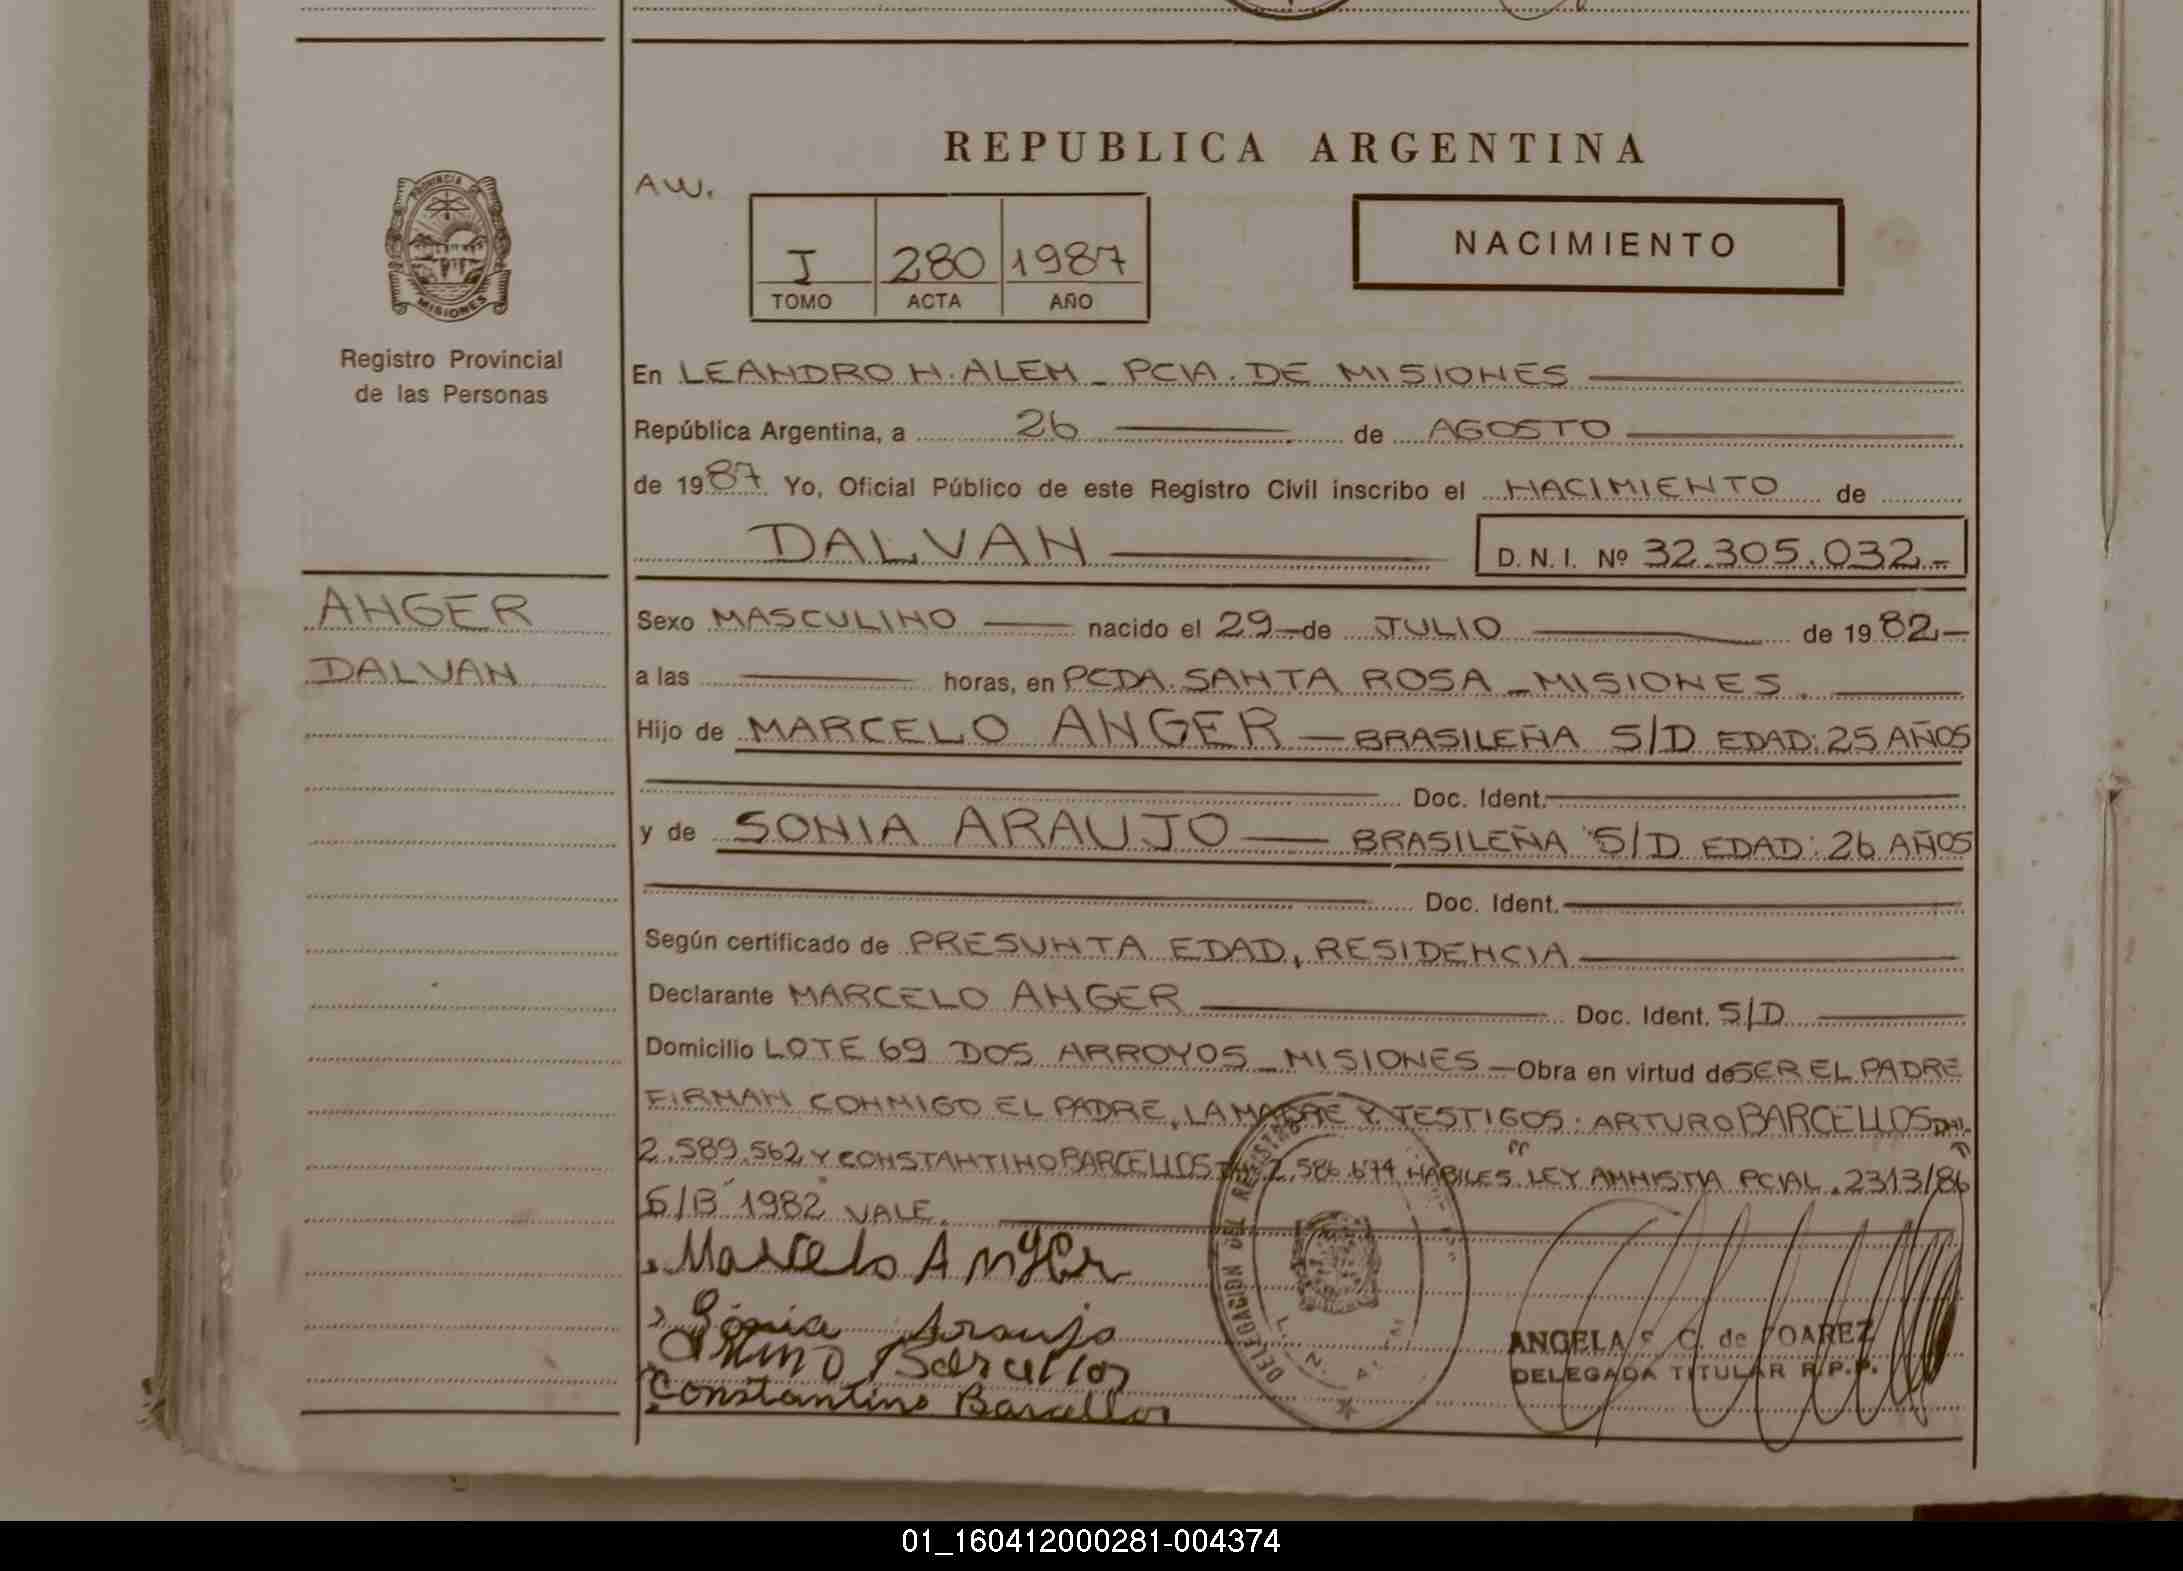 REPUBLICA ARGENTINA
AW.
PROVINCIA DE
MISIONES
I 280 1987
TOMO ACTA AÑO
NACIMIENTO
Registro Provincial
de las Personas
En LEANDRO N. ALEM - PCIA. DE MISIONES
República Argentina, a 26 de AGOSTO
de 1987 Yo, Oficial Público de este Registro Civil inscribo el NACIMIENTO de
DALVAN D. N. I. Nº 32.305.032.-
ANGER
DALVAN
Sexo MASCULINO nacido el 29 de JULIO de 1982-
a las horas, en PCDA. SANTA ROSA - MISIONES.
Hijo de MARCELO ANGER - BRASILEÑA S/D EDAD: 25 AÑOS
Doc. Ident.
y de SONIA ARAUJO - BRASILEÑA S/D EDAD: 26 AÑOS
Doc. Ident.
Según certificado de PRESUNTA EDAD, RESIDENCIA
Declarante MARCELO ANGER Doc. Ident. S/D
Domicilio LOTE 69 DOS ARROYOS - MISIONES - Obra en virtud de SER EL PADRE
FIRMAN CONMIGO EL PADRE, LA MADRE Y TESTIGOS: ARTURO BARCELLOS DNI.
2.589.562 Y CONSTANTINO BARCELLOS 2.586.674 HABILES LEY AMNISTIA PCIAL. 2313/86
S/B "1982" VALE.
Marcelo Anger
Sonia Araujo
Barcellos
Constantino Barcellos
DELEGACION DEL REGISTRO
L. N. ALEM
ANGELA C. de SOAREZ
DELEGADA TITULAR R.P.P.
01_160412000281-004374